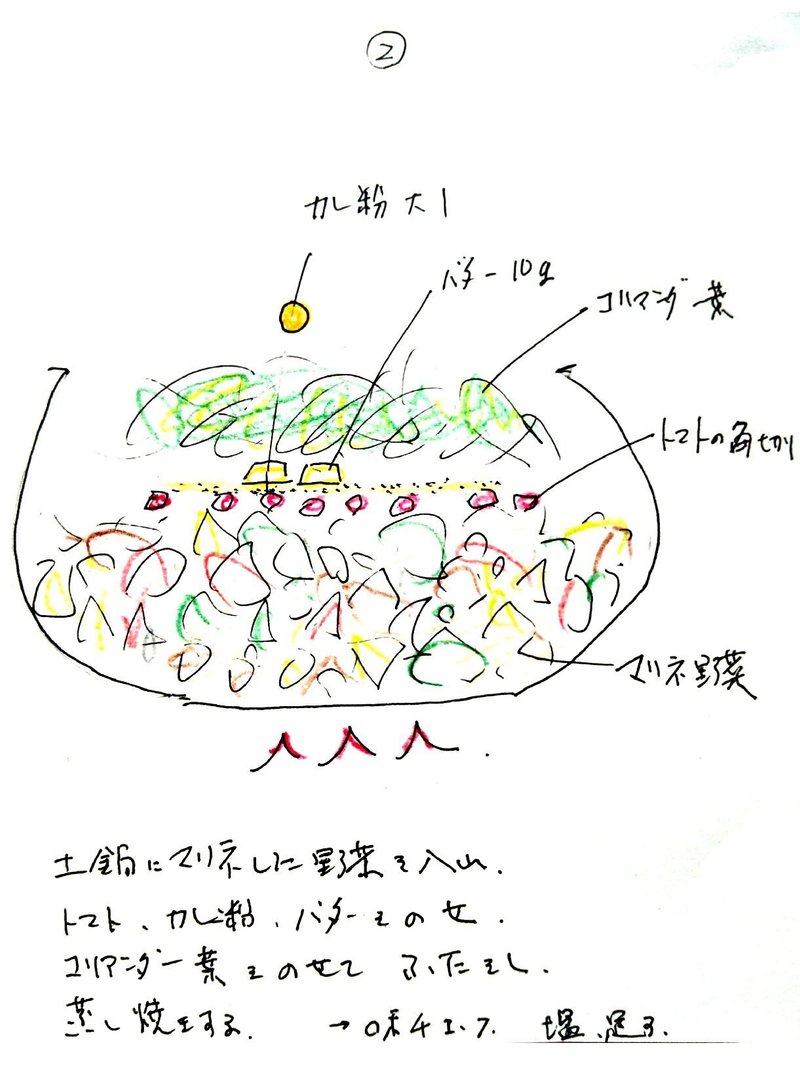 ②
カレ粉 大1
バター 10g
コリアンダー葉
トマトの角切り
マリネ野菜
土鍋にマリネした野菜を入れ、
トマト、カレー粉、バターをのせ、
コリアンダー葉をのせて ふたをし、
蒸し焼をする。 → 味チェック。 塩、足る。